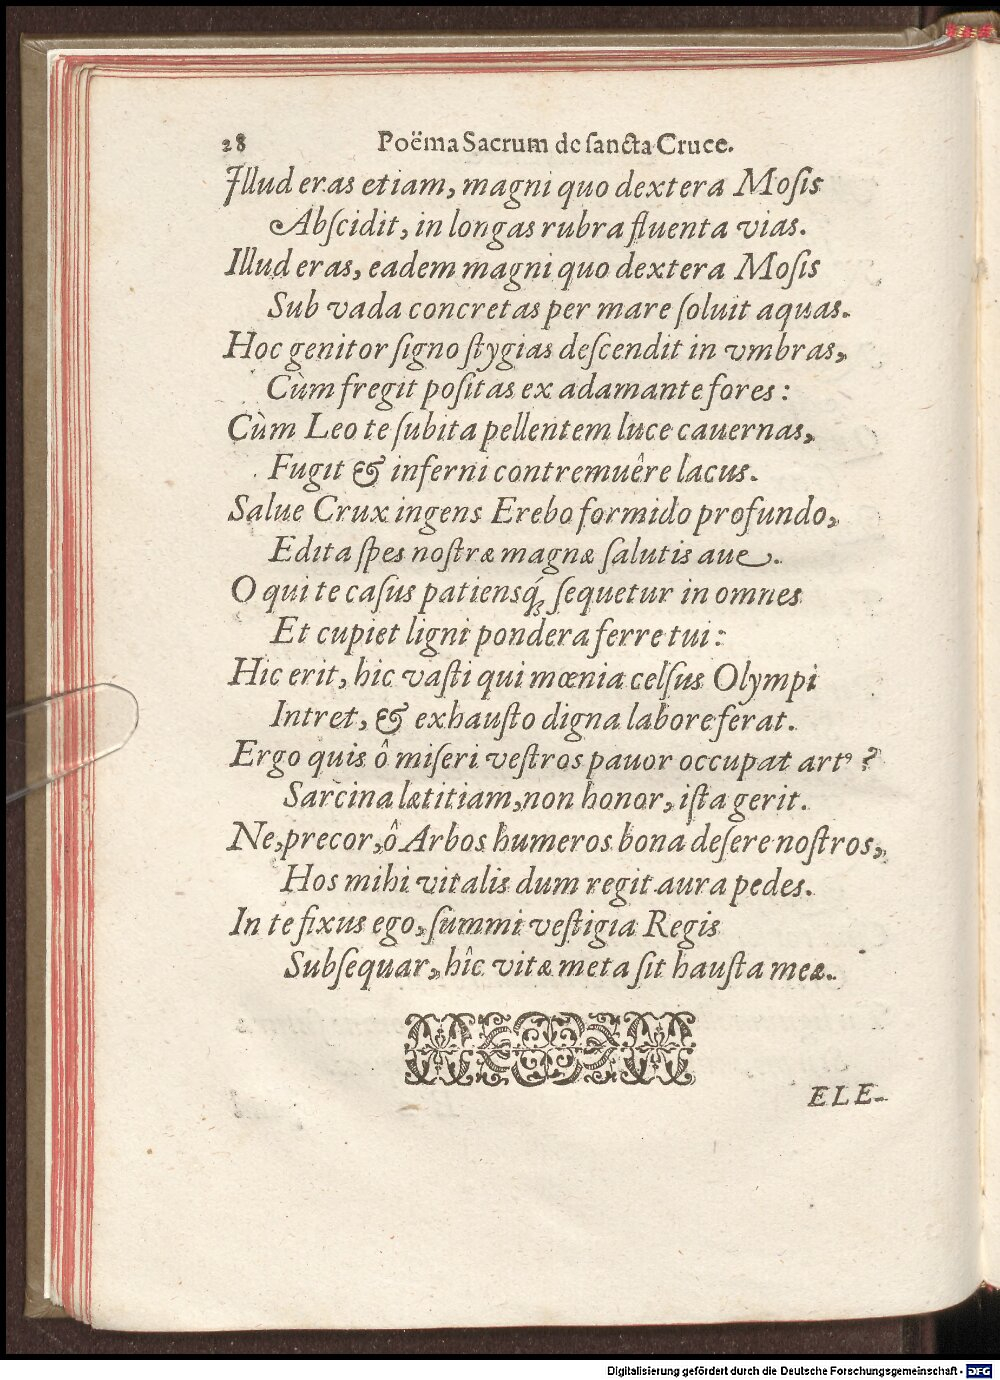 28 Poëma Sacrum de sancta Cruce.
Illud eras etiam, magni quo dextera Mosis
Abscidit, in longas rubra fluenta vias.
Illud eras, eadem magni quo dextera Mosis
Sub vada concretas per mare soluit aquas.
Hoc genitor signo stygias descendit in vmbras,
Cùm fregit positas ex adamante fores:
Cùm Leo te subita pellentem luce cauernas,
Fugit & inferni contremuêre lacus.
Salue Crux ingens Erebo formido profundo,
Edita spes nostræ magnæ salutis aue.
O qui te casus patiensq́; sequetur in omnes
Et cupiet ligni pondera ferre tui:
Hic erit, hic vasti qui mœnia celsus Olympi
Intret, & exhausto digna labore ferat.
Ergo quis ô miseri vestros pauor occupat artꝰ?
Sarcina lætitiam, non honor, ista gerit.
Ne, precor, ô Arbos humeros bona desere nostros,
Hos mihi vitalis dum regit aura pedes.
In te fixus ego, summi vestigia Regis
Subsequar, hîc vitæ meta sit hausta meæ.
ELE-
Digitalisierung gefördert durch die Deutsche Forschungsgemeinschaft - DFG